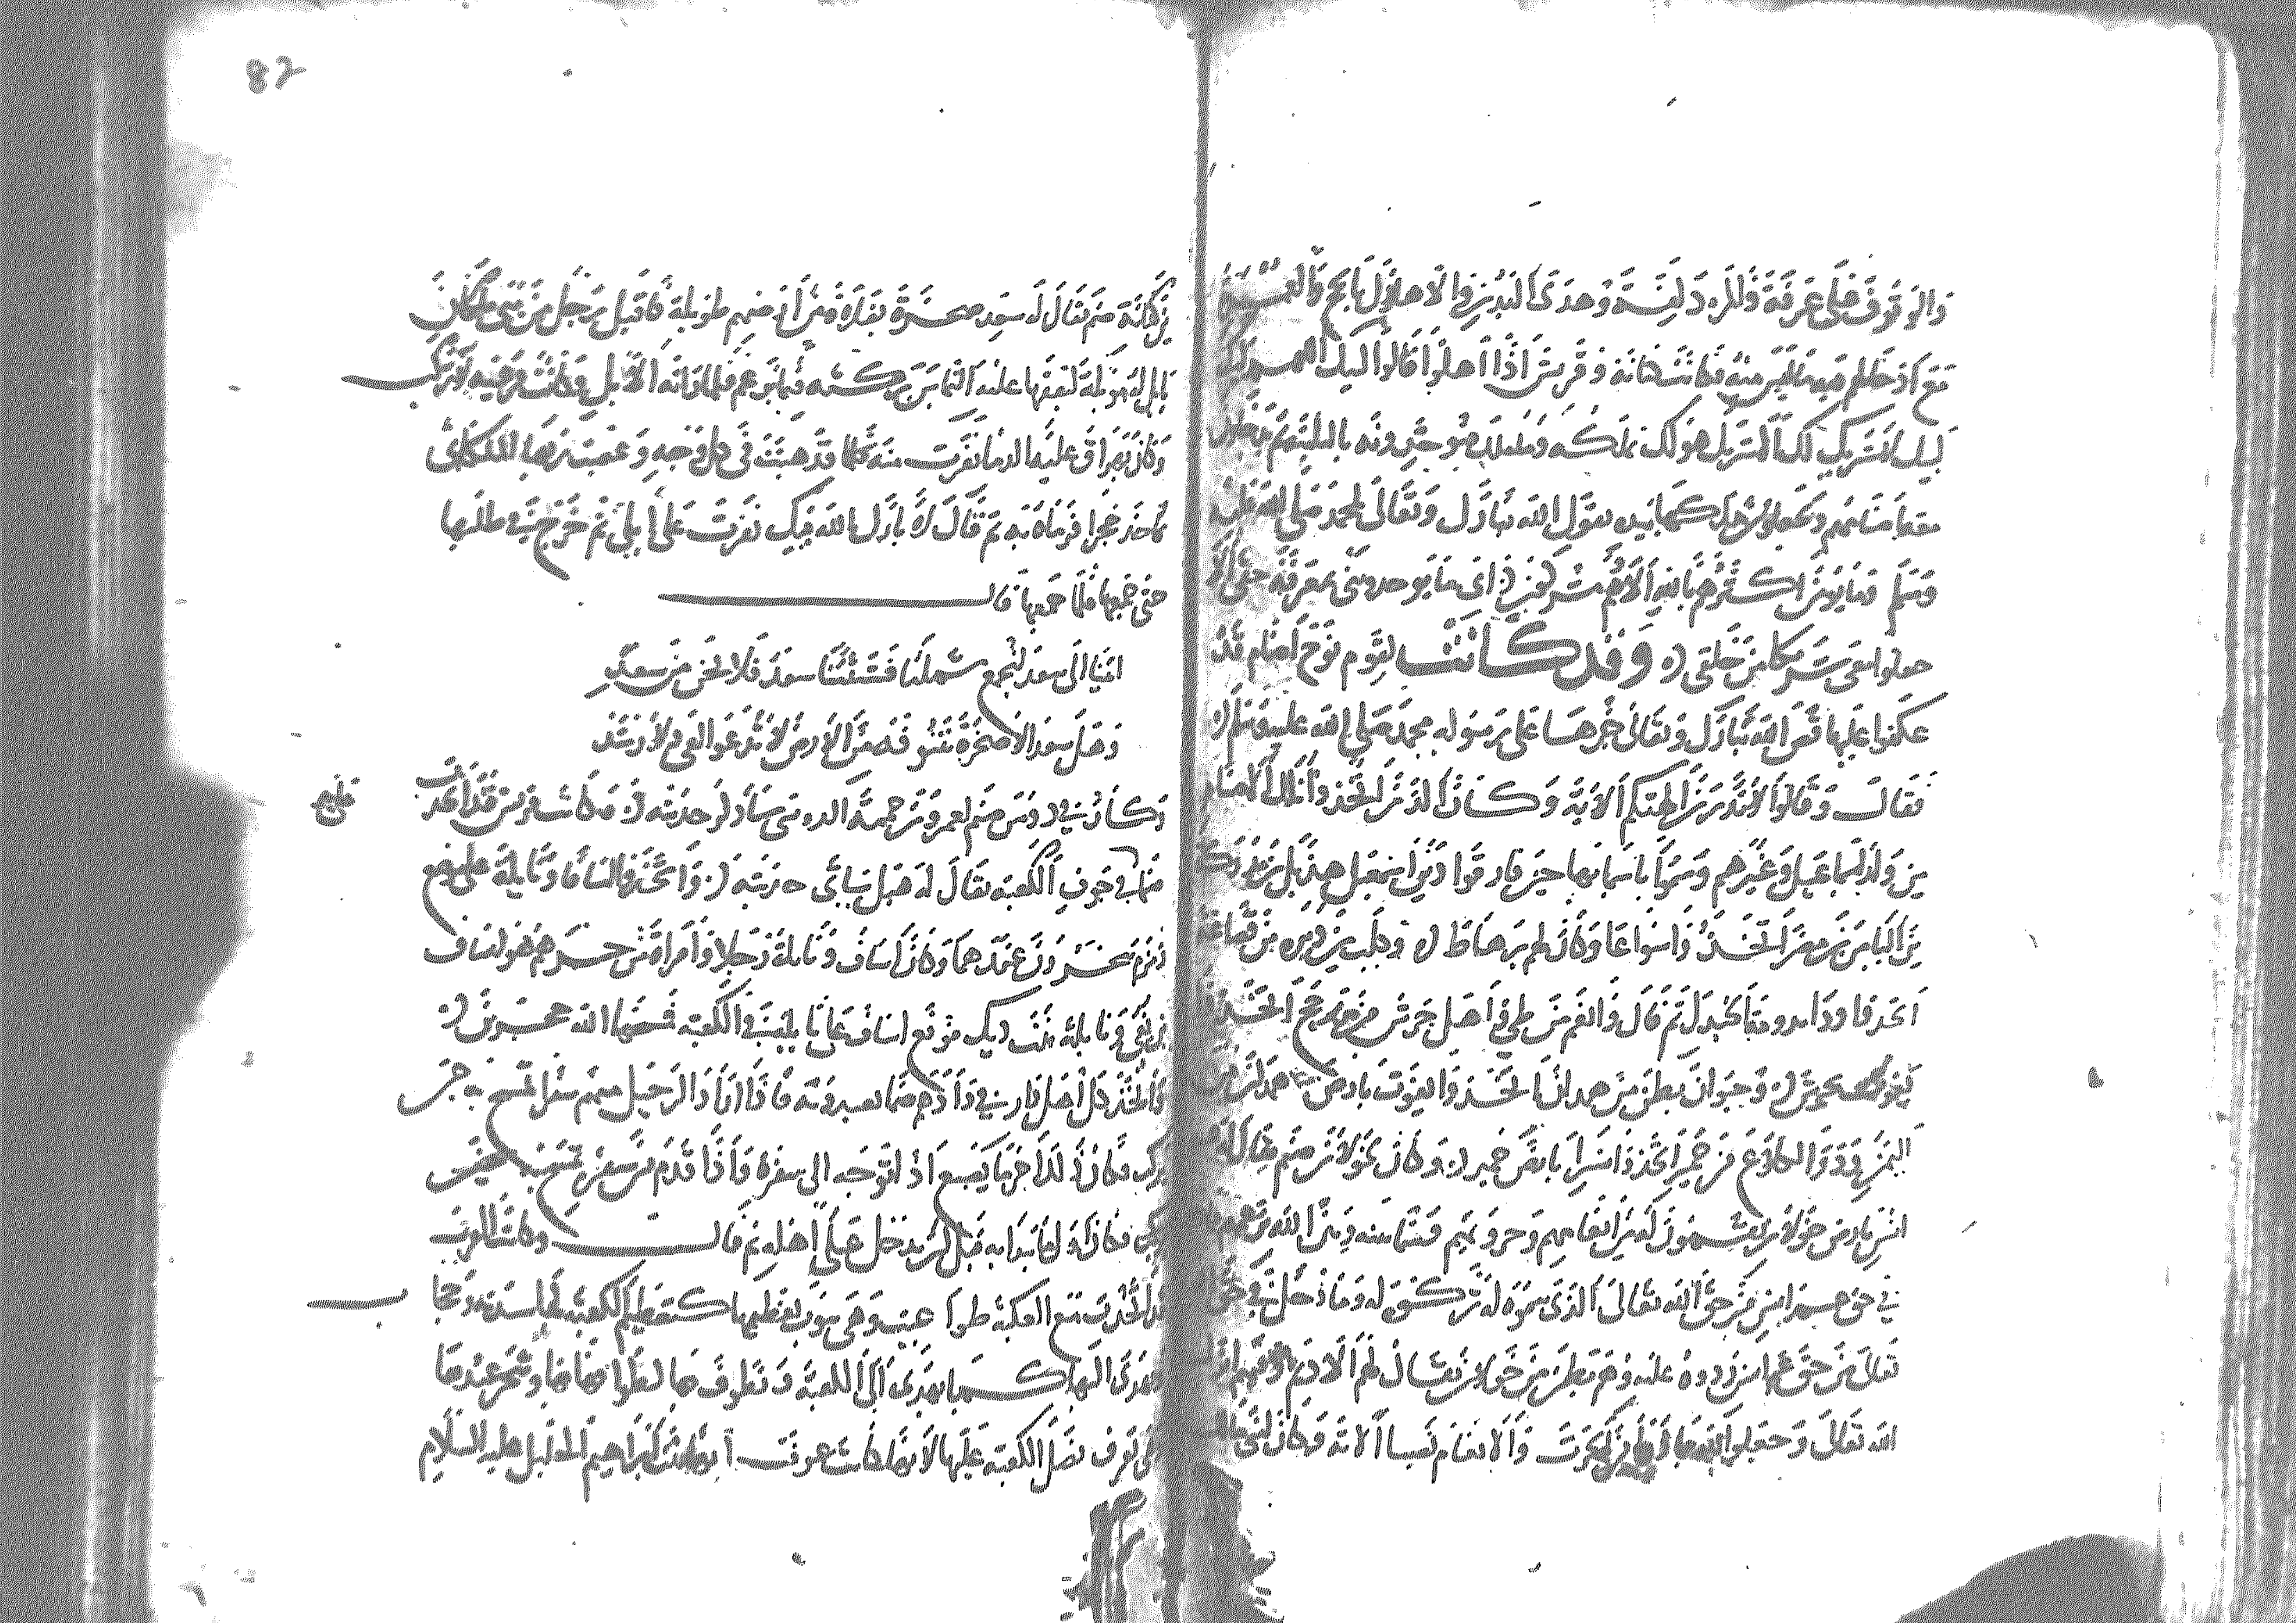 والوقوف على عرفة والمزدلفة وهدي البدن والاهلال بالحج والعمرة
مع ادخالهم فيه ما ليس منه فكانت كنانة وقريش اذا اهلوا قالوا لبيك اللهم لبيك
لبيك لا شريك لك الا شريك هو لك تملكه وما ملك فيوحدونه بالتلبية ثم يدخلون
معه اصنامهم ويجعلون ملكها بيده يقول الله تبارك وتعالى لمحمد صلى الله عليه
وسلم وما يومن اكثرهم بالله الا وهم مشركون اي ما يوحدونني بمعرفة حقي الا
جعلوا معي شريكا من خلقي وقد كانت لقوم نوح اصنام قد
عكفوا عليها قص الله تبارك وتعالى خبرها على رسوله محمد صلى الله عليه وسلم
فقال وقالوا لا تذرن الهتكم الاية وكان الذين اتخذوا تلك الاصنام
من ولد اسماعيل وغيرهم وسموا باسمائها حين فارقوا دين اسمعيل هذيل بن مدركة
بن الياس بن مضر اتخذوا سواعا وكان لهم برهاط وكلب بن وبرة من قضاعة
اتخذوا ودا بدومة الجندل ثم قال وانعم من طي واهل جرش من مذحج اتخذوا
يغوث بجرش وخيوان بطن من همدان اتخذوا يعوق بارض همدان من
اليمن وذو الكلاع من حمير اتخذوا نسرا بارض حمير وكان لخولان صنم يقال له
انس بارض خولان يقسمون له من انعامهم وحروثهم قسما بينه وبين الله بزعمهم
في حق عم انس من حق الله تعالى الذي سموه له تركوه له وما دخل في حق
تعالى من حق عم انس ردوه عليه وهم بطن من خولان يقال لهم الاديم وفيهم انزل
الله تعالى وجعلوا لله مما ذرا من الحرث والانعام نصيبا الاية وكان لبني ملكان
82
بن كنانة صنم يقال له سعد صخرة بفلاة من ارضهم طويلة فاقبل رجل من بني ملكان
بابل له مؤبلة ليقفها عليه التماس بركته فيما يزعم فلما راته الابل وكانت مرعية لا تركب
وكان يهراق عليه الدما نفرت منه فذهبت في كل وجه وغضب ربها الملكاني
فاخذ حجرا فرماه به ثم قال لا بارك الله فيك نفرت علي ابلي ثم خرج في طلبها
حتى جمعها فلما جمعها قال
اتينا الى سعد ليجمع شملنا فشتتنا سعد فلا نحن من سعد
وهل سعد الا صخرة بتنوفة من الارض لا تدعو لغي ولا رشد
وكان في دوس صنم لعمرو بن حممة الدوسي ساذكر حديثه وكانت قريش قد اتخذت
صنما في جوف الكعبة يقال له هبل سياتي حديثه واتخذوا اسافا ونايلة على موضع
زمزم ينحرون عندهما وكان اساف ونايلة رجلا وامراة من جرهم هو اساف
بن بغي ونايلة بنت ديك فوقع اساف على نايلة في الكعبة فمسخهما الله حجرين
واتخذ كل اهل دار في دارهم صنما يعبدونه فاذا اراد الرجل منهم سفرا تمسح به حين
يركب فكان ذلك اخر ما يصنع اذا توجه الى سفره واذا قدم من سفر تمسح به حين
فكان اول ما يبدا به قبل ان يدخل على اهله ثم قال وكانت العرب
قد اتخذت مع الكعبة طواغيت وهي بيوت تعظمها كتعظيم الكعبة لها سدنة وحجاب
وتهدي اليها كما يهدى الى الكعبة وتطوف بها كطوافها بها وتنحر عندها
وهي تعرف فضل الكعبة عليها لانها كانت عرفت انها بيت ابراهيم الخليل عليه السلام